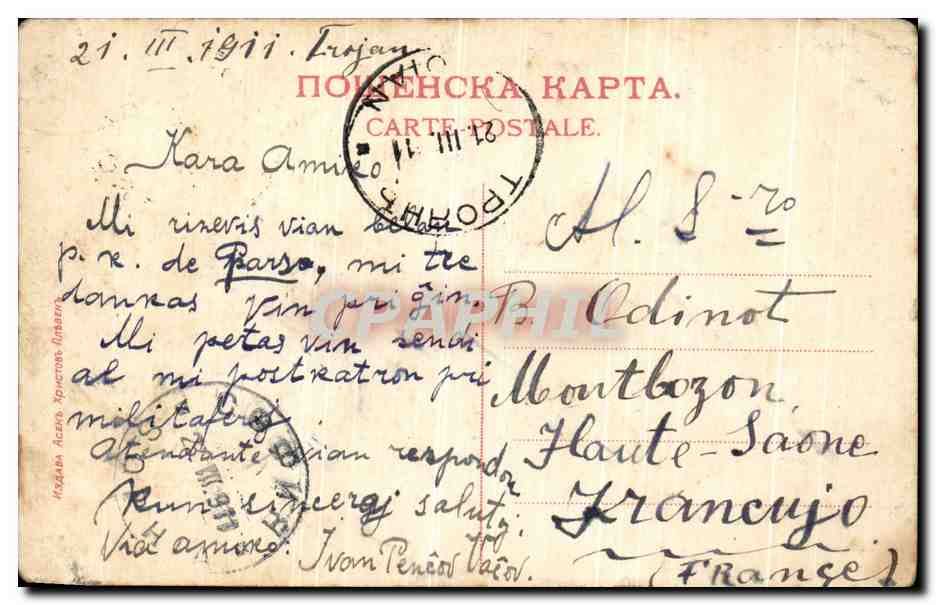 21. III. 1911. Trojan
ПОЩЕНСКА КАРТА.
CARTE POSTALE.
ТРОЯНЪ
21.III.11
Kara Amiko
Mi ricevis vian belan
p. k. de Parso, mi tre
dankas vin pri ĝin.
Mi petas vin sendi
al mi postkatron pri
militaferoj
Atendante vian respondon
kun sinceraj salutoj
Via amiko.
Ivan Penčov Vačov.
Al. S-ro
B. Odinot
Montbozon
Haute-Saône
Francujo
(FRANCE)
ИЗДАВА АСЕНЪ ХРИСТОВЪ ПЛѢВЕНЪ
CPARPHIL